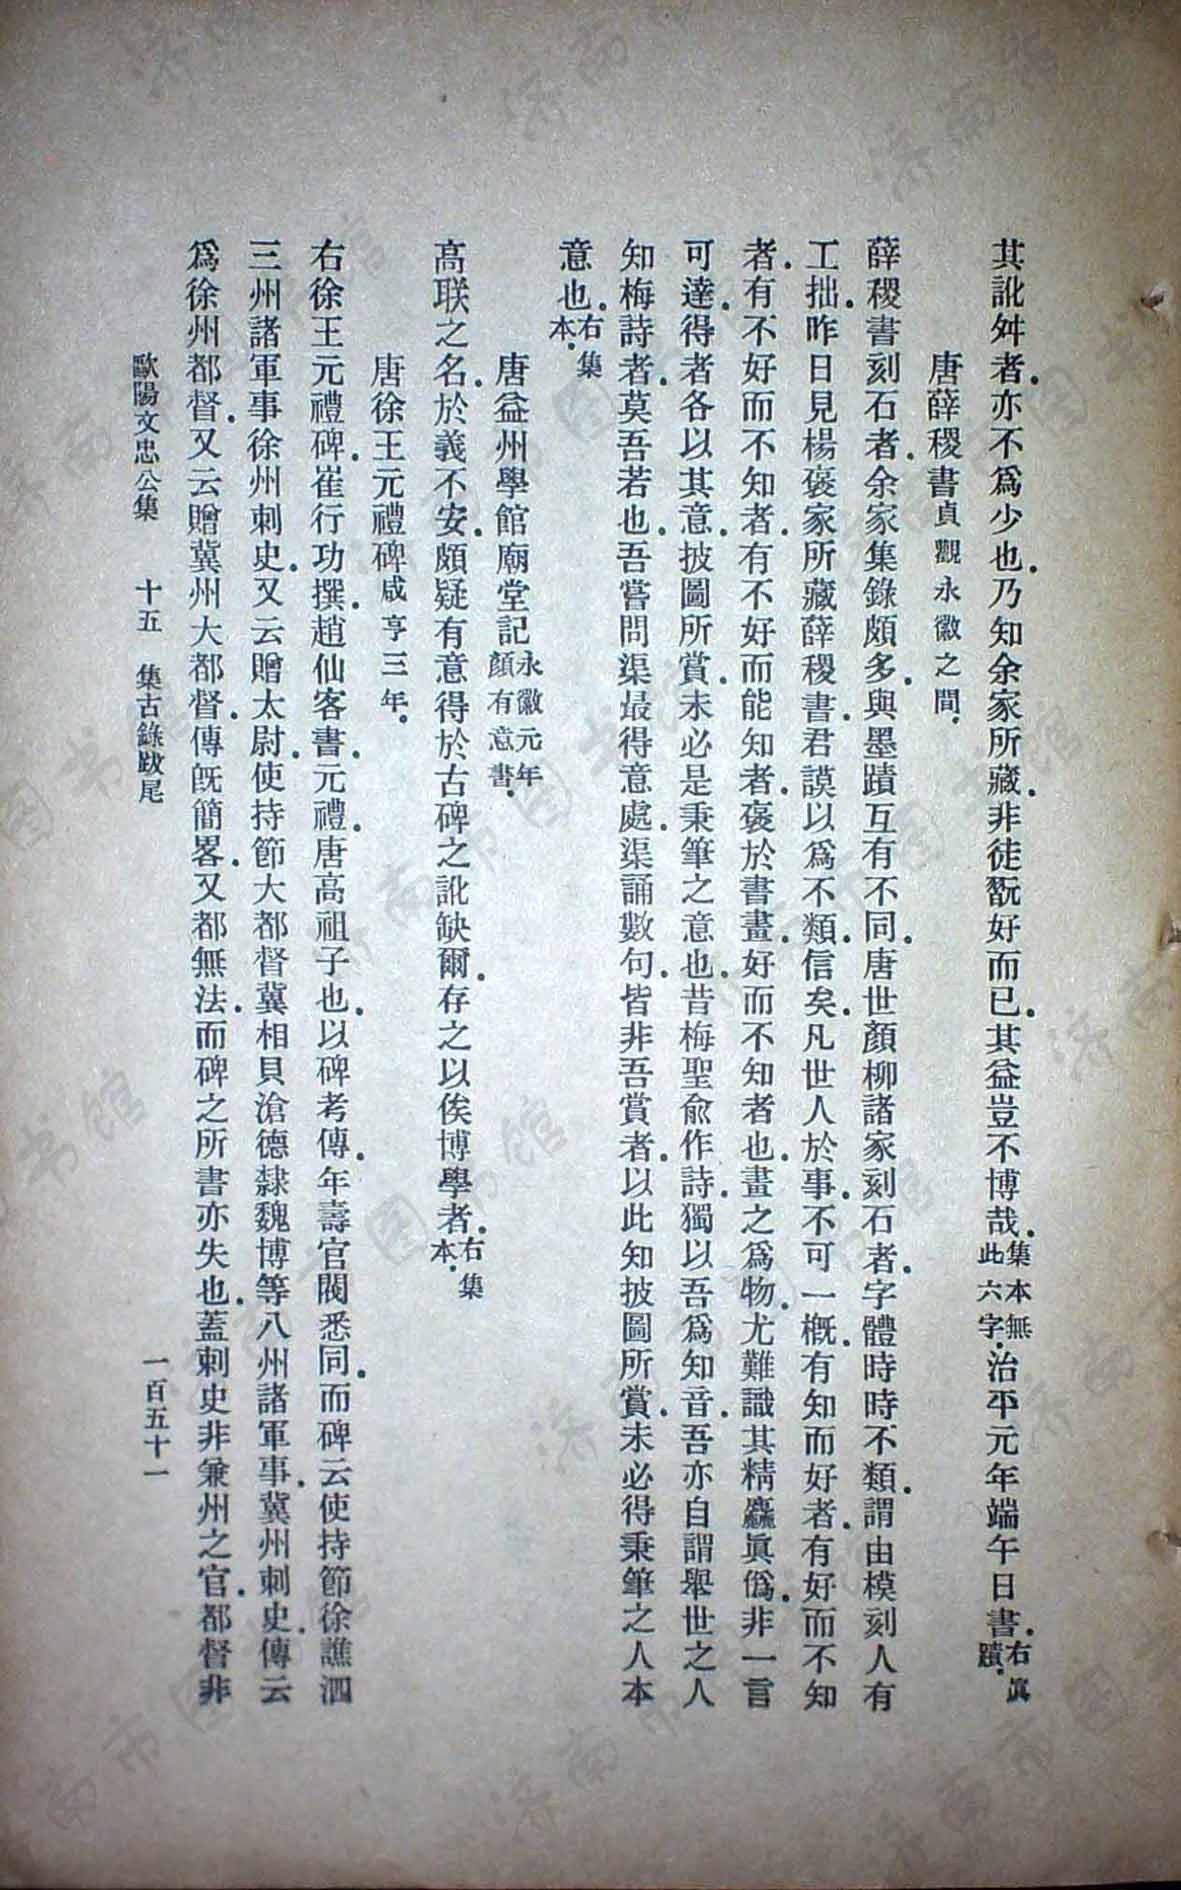 其訛舛者亦不爲少也乃知余家所藏非徒翫好而已其益豈不博哉集本無此六字治平元年端午日書右眞蹟
唐薛稷書貞觀永徽之間
薛稷書刻石者余家集錄頗多與墨蹟互有不同唐世顏柳諸家刻石者字體時時不類謂由模刻人有
工拙昨日見楊褒家所藏薛稷書君謨以爲不類信矣凡世人於事不可一槪有知而好者有好而不知
者有不好而不知者有不好而能知者褒於書畫好而不知者也畫之爲物尤難識其精麤眞僞非一言
可達得者各以其意披圖所賞未必是秉筆之意也昔梅聖俞作詩獨以吾爲知音吾亦自謂舉世之人
知梅詩者莫吾若也吾嘗問渠最得意處渠誦數句皆非吾賞者以此知披圖所賞未必得秉筆之人本
意也右集本
唐益州學館廟堂記永徽元年顏有意書
高联之名於義不安頗疑有意得於古碑之訛缺爾存之以俟博學者右集本
唐徐王元禮碑咸亨三年
右徐王元禮碑崔行功撰趙仙客書元禮唐高祖子也以碑考傳年壽官閥悉同而碑云使持節徐譙泗
三州諸軍事徐州刺史又云贈太尉使持節大都督冀相貝滄德隸魏博等八州諸軍事冀州刺史傳云
爲徐州都督又云贈冀州大都督傳旣簡畧又都無法而碑之所書亦失也蓋刺史非兼州之官都督非
歐陽文忠公集 十五 集古錄跋尾 一百五十一
濟南市图书馆